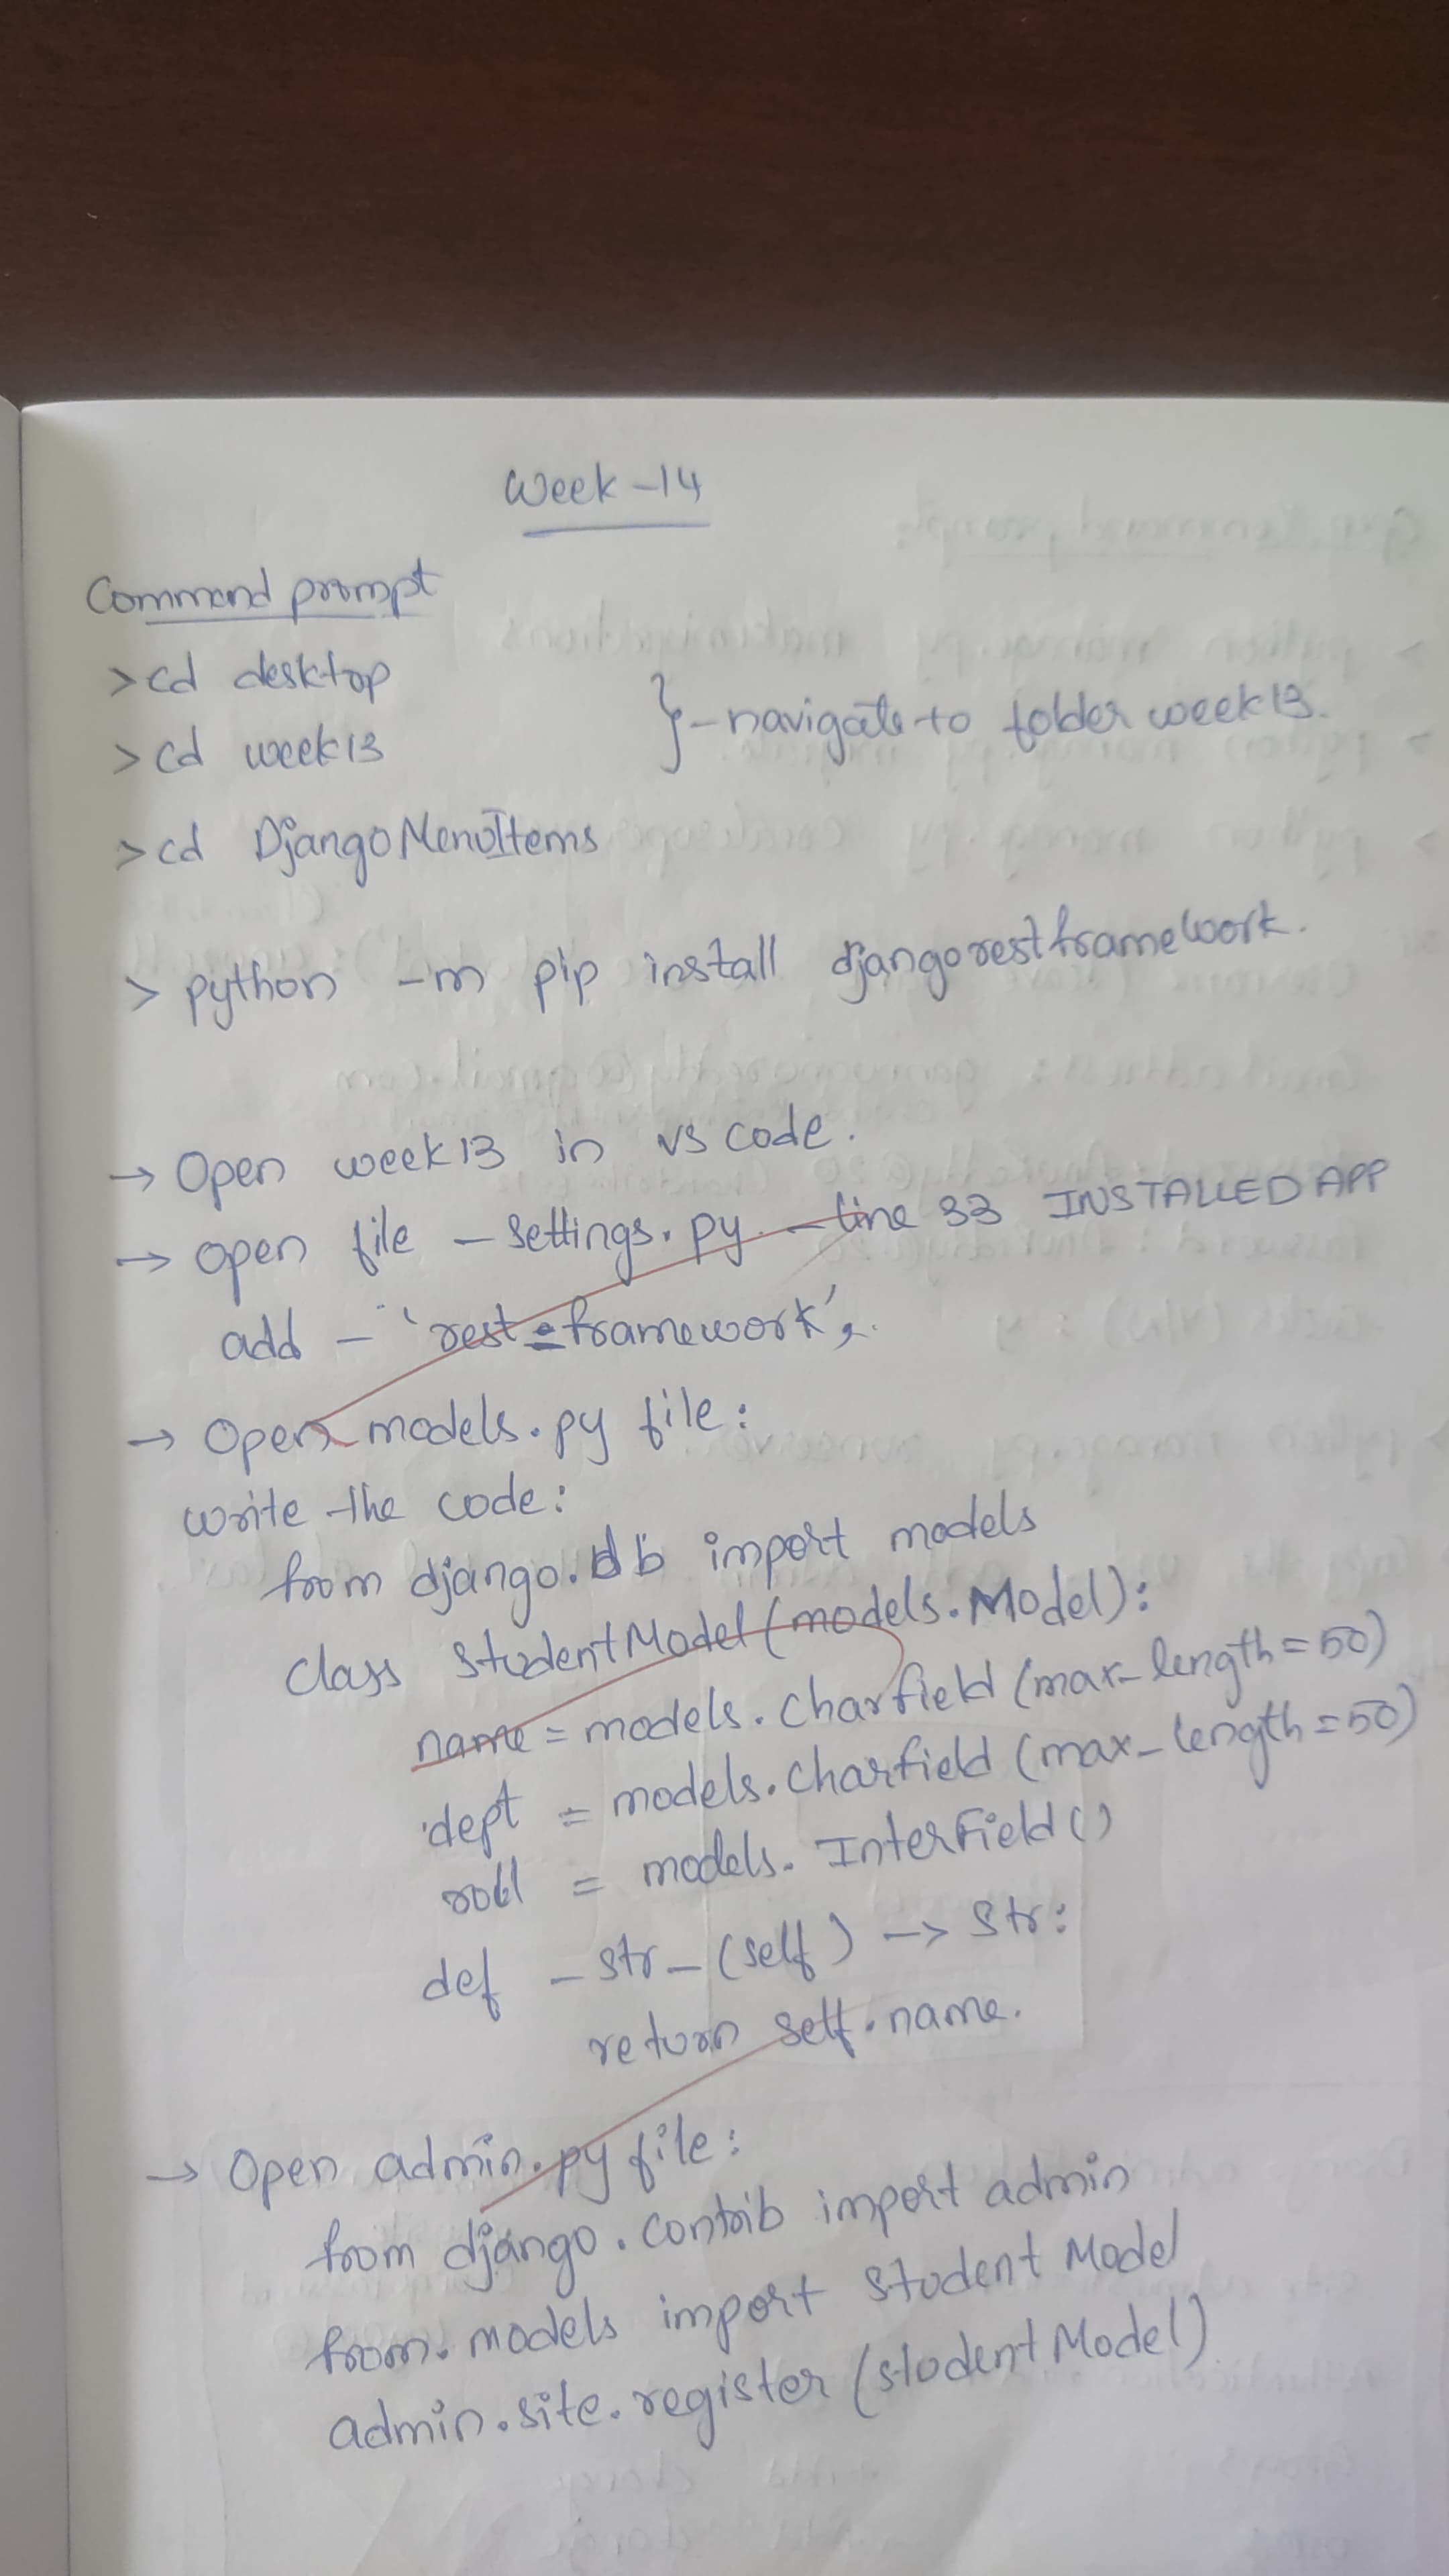 Week-14
Command prompt
>cd desktop
>cd week13
}-navigate to folder week13.
>cd DjangoMenuItems
> python -m pip install djangorestframework.
→ Open week13 in vs code.
→ open file - settings.py - line 33 INSTALLED APP
add - 'rest_framework',.
→ Open models.py file:
write the code:
from django.db import models
class studentModel(models.Model):
name = models.Charfield (max_length=50)
dept = models.Charfield (max_length=50)
roll = models.InterField()
def _str_(self) -> str:
return self.name.
→ Open admin.py file:
from django.contrib import admin
from.models import studentModel
admin.site.register (studentModel)